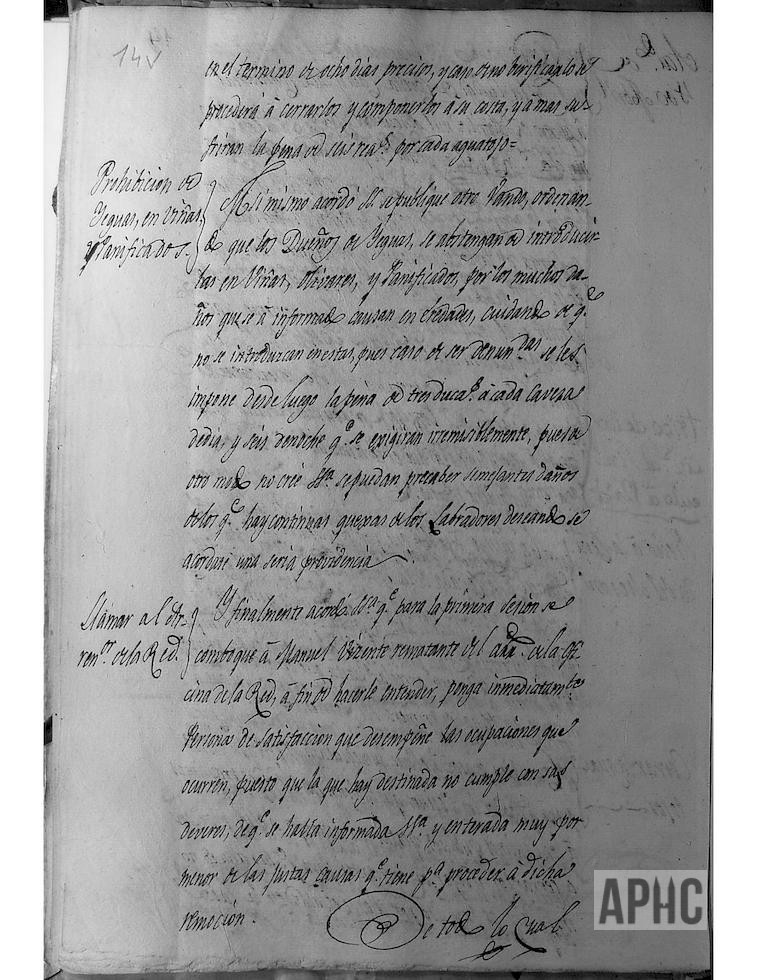 14v
en el termino de ocho dias precisos, y caso de no berificarlo se
procederá á cerrarlos y componerlos á su costa, y á mas su-
friran la pena de seis rea.s por cada aguatojo=
Prohibicion de
Yeguas, en viñas,
y Panificados.
Asimismo acordó SS.a se publique otro Vando, ordenan-
do que los Dueños de Yeguas, se abstengan de introducir-
las en Viñas, Olivares, y Panificados, por los muchos da-
ños que se á informado causan en eredades, cuidando de q.e
no se introduzcan en estas, pues caso de ser denun.das se les
impone desde luego la pena de tres duca.s á cada caveza
de dia, y seis de noche q.e se exigiran irremisiblemente, pues de
otro modo no cree SS.a se puedan precaber semejantes daños
de los q.e hay continuas quexas de los Labradores deseando se
acordase una seria providencia
Llamar al Ar-
ren.or de la Red.
Y finalmente acordó SS.a q.e para la primera sesion se
comboque á Manuel Vizente rematante del de la ofi-
cina de la Red, á fin de hacerle entender, ponga inmediatam.te
Persona de satisfaccion que desempeñe las ocupaciones que
ocurren, puesto que la que hay destinada no cumple con sus
deveres, de q.e se halla informada SS.a y enterada muy por
menor de las justas causas q.e tiene p.a proceder á dicha
remocion.
De todo lo qual
APHC